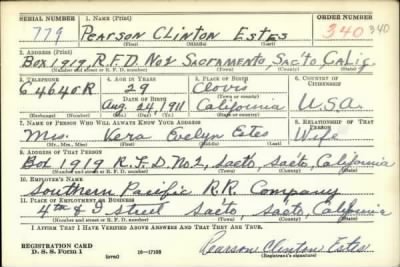 SERIAL NUMBER 1. NAME (Print) ORDER NUMBER
779 PEARSON CLINTON ESTES 340 340
(First) (Middle) (Last)
2. ADDRESS (Print)
BOX 1919, R.F.D. No2 SACRAMENTO, SAC'TO CALIF.
(Number and street or R. F. D. number) (Town) (County) (State)
3. TELEPHONE 4. AGE IN YEARS 5. PLACE OF BIRTH 6. COUNTRY OF CITIZENSHIP
64640R 29 Clovis
DATE OF BIRTH (Town or county)
Aug. 24, 1911 California U.S.A.
(Mo.) (Day) (Yr.) (State or country)
7. NAME OF PERSON WHO WILL ALWAYS KNOW YOUR ADDRESS 8. RELATIONSHIP OF THAT PERSON
Mrs. Vera Evelyn Estes Wife
(Mr., Mrs., Miss) (First) (Middle) (Last)
9. ADDRESS OF THAT PERSON
Box 1919 R.F.D. No2, Sacto, Sac'to, California
(Number and street or R. F. D. number) (Town) (County) (State)
10. EMPLOYER'S NAME
Southern Pacific R.R. Company
11. PLACE OF EMPLOYMENT OR BUSINESS
4th & I Street Sac'to, Sacto, California
(Number and street or R. F. D. number) (Town) (County) (State)
I AFFIRM THAT I HAVE VERIFIED ABOVE ANSWERS AND THAT THEY ARE TRUE.
REGISTRATION CARD
D. S. S. Form 1 (over) 16-17105
Pearson Clinton Estes
(Registrant's signature)